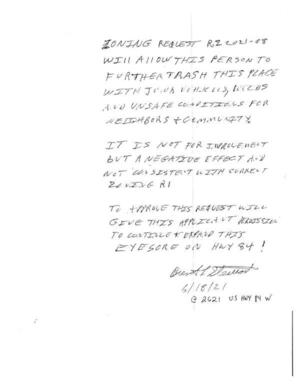 ZONING REQUEST RZ 2021-08
WILL ALLOW THIS PERSON TO
FURTHER TRASH THIS PLACE
WITH JUNK VEHICLES, WEEDS
AND UNSAFE CONDITIONS FOR
NEIGHBORS + COMMUNITY
IT IS NOT FOR IMPROVEMENT
BUT A NEGATIVE EFFECT AND
NOT CONSISTENT WITH CURRENT
ZONING R1
TO APPROVE THIS REQUEST WILL
GIVE THIS APPLICANT PERMISSION
TO CONTINUE + EXPAND THIS
EYESORE ON HWY 84!
6/18/21
@ 2621 US HWY 84 W